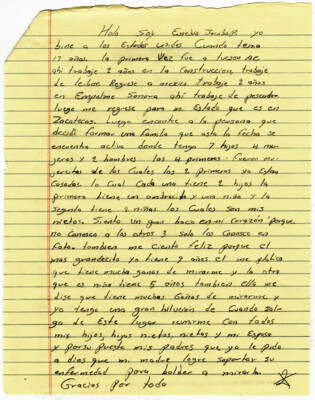 Hola Soy Eusebio Jacobo R yo
bine a los Estados unidos Cuando tenia
17 años. la primera Vez fue a tucson AZ
ahi trabaje 2 años en la Construccion, trabaje
de leibor Regrese a mexico trabaje 2 años
en Empalme Sonora ahi trabaje de pescador
luego me regrese para mi Estado que es en
Zacatecas. Luego encontre a la persona que
decidi formar una familia que asta la fecha se
encuentra activa donde tengo 7 hijos 4 mo
jeres y 2 hombres las 4 primeras Fueron mu
jercitas de las Cuales las 2 primeras ya Estan
Casadas. la Cual Cada una tiene 2 hijos la
primera tiene un hombrecito y una niña y la
segunda tiene 2 niñas los Cuales Son mis
nietos. Siento un gran hueco en mi Corazon porque
no Conosco a los otros 3 solo los Conosco en
Fotos. tambien me Ciento Feliz porque el
mas grandecito ya tiene 9 años el me platica
que tiene mucha ganas de mirarme y la otra
que es niña tiene 5 años tambien Ella me
dise que tiene muchas Ganas de mirarme, y
yo tengo una gran hilucion de Cuando Sal-
ga de Este lugar reunirme Con todos
mis hijos, hijas nietos, nietas y mi Esposa
y por su puesto mis padres que yo le pido
a dios que mi madre logre soportar su
enfermedad para bolber a mirarla
Gracias por todo